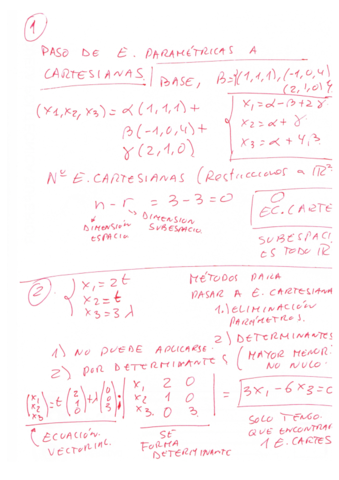 1
PASO DE E. PARAMÉTRICAS A
CARTESIANAS. BASE, B={(1,1,1), (-1,0,4)
(2,1,0)}
(x1,x2,x3) = α(1,1,1) +
β(-1,0,4) +
γ(2,1,0)
x1 = α - β + 2γ
x2 = α + γ
x3 = α + 4β
Nº E. CARTESIANAS (Restricciones a ℝ
n - r = 3 - 3 = 0
DIMENSIÓN
ESPACIO
DIMENSION
SUBESPACIO
0
EC. CARTE
SUBESPACI
ES TODO ℝ
2
x1 = 2t
x2 = t
x3 = 3λ
MÉTODOS PARA
PASAR A E. CARTESIANA
1) ELIMINACIÓN
PARÁMETROS.
2) DETERMINANTES
(MAYOR MENOR
NO NULO.
1) NO PUEDE APLICARSE.
2) POR DETERMINANTES
(x1 x2 x3) = t(2 1 0) + λ(0 0 3)
x1 2 0
x2 1 0
x3 0 3
= 3x1 - 6x2 = 0
ECUACIÓN
VECTORIAL.
SE
FORMA
DETERMINANTE
SOLO TENGO
QUE ENCONTRAR
1 E. CARTES